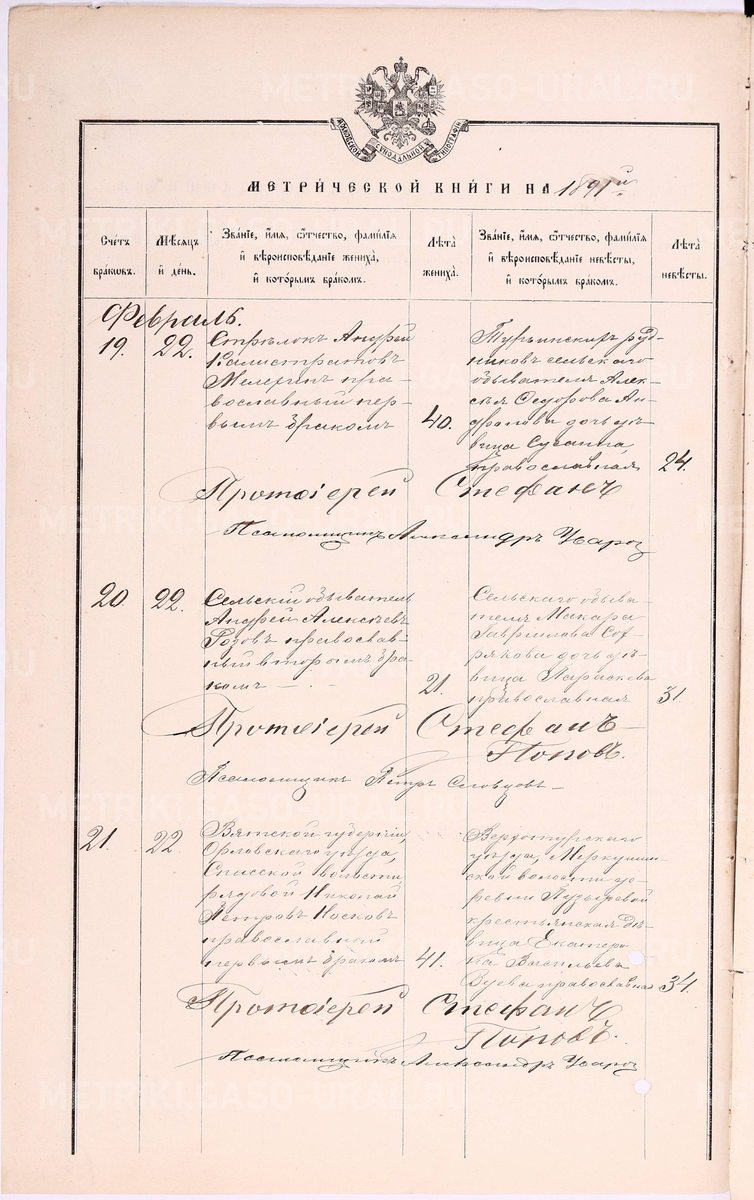 МОСКОВСКОЙ СѴНОДАЛЬНОЙ ТИПОГРАФІИ
МЕТРИ́ЧЕСКОЙ КНИ́ГИ НА 1891й
Счетъ бра́ковъ.
Мѣсяцъ и҆ де́нь.
Зва́нїе, и҆́мѧ, ѻ҆́тчество, фами́лїѧ и҆ вѣроисповѣ́данїе жениха̀, и҆ кото́рымъ бра́комъ.
Лѣта̀ жениха̀.
Зва́нїе, и҆́мѧ, ѻ҆́тчество, фами́лїѧ и҆ вѣроисповѣ́данїе невѣ́сты, и҆ кото́рымъ бра́комъ.
Лѣта̀ невѣ́сты.
Февраль.
19.
22.
Стрѣлокъ Андрей
Калистратовъ
Мелегинъ пра-
вославный пер-
вымъ бракомъ
40.
Турьинскихъ руд-
никовъ сельскаго
обывателя Алек-
сѣя Ѳедорова Ан-
дронова дочь дѣ-
вица Сусанна,
православная
24.
Протоіерей Стефанъ
Псаломщикъ Александръ
20.
22.
Сельскій обыватель
Андрей Алексѣевъ
Розовъ православ-
ный вторымъ бра-
комъ
21.
Сельскаго обыва-
теля Макара
Гаврилова
дочь дѣ-
вица Параскева
православная
31
Протоіерей Стефанъ
Поповъ.
Псаломщикъ Петръ Словцовъ
21.
22
Вятской губерніи,
Орловскаго уѣзда,
Спасской волости
рядовой Николай
Петровъ Носковъ
православный
первымъ бракомъ
41.
Верхотурскаго
уѣзда, Меркушин-
ской волости де-
ревни Пузыревой
крестьянская дѣ-
вица Екатери-
на Васильева
Зуева православная
34.
Протоіерей Стефанъ
Поповъ.
Псаломщикъ Александръ
METRIKI.GASO-URAL.RU